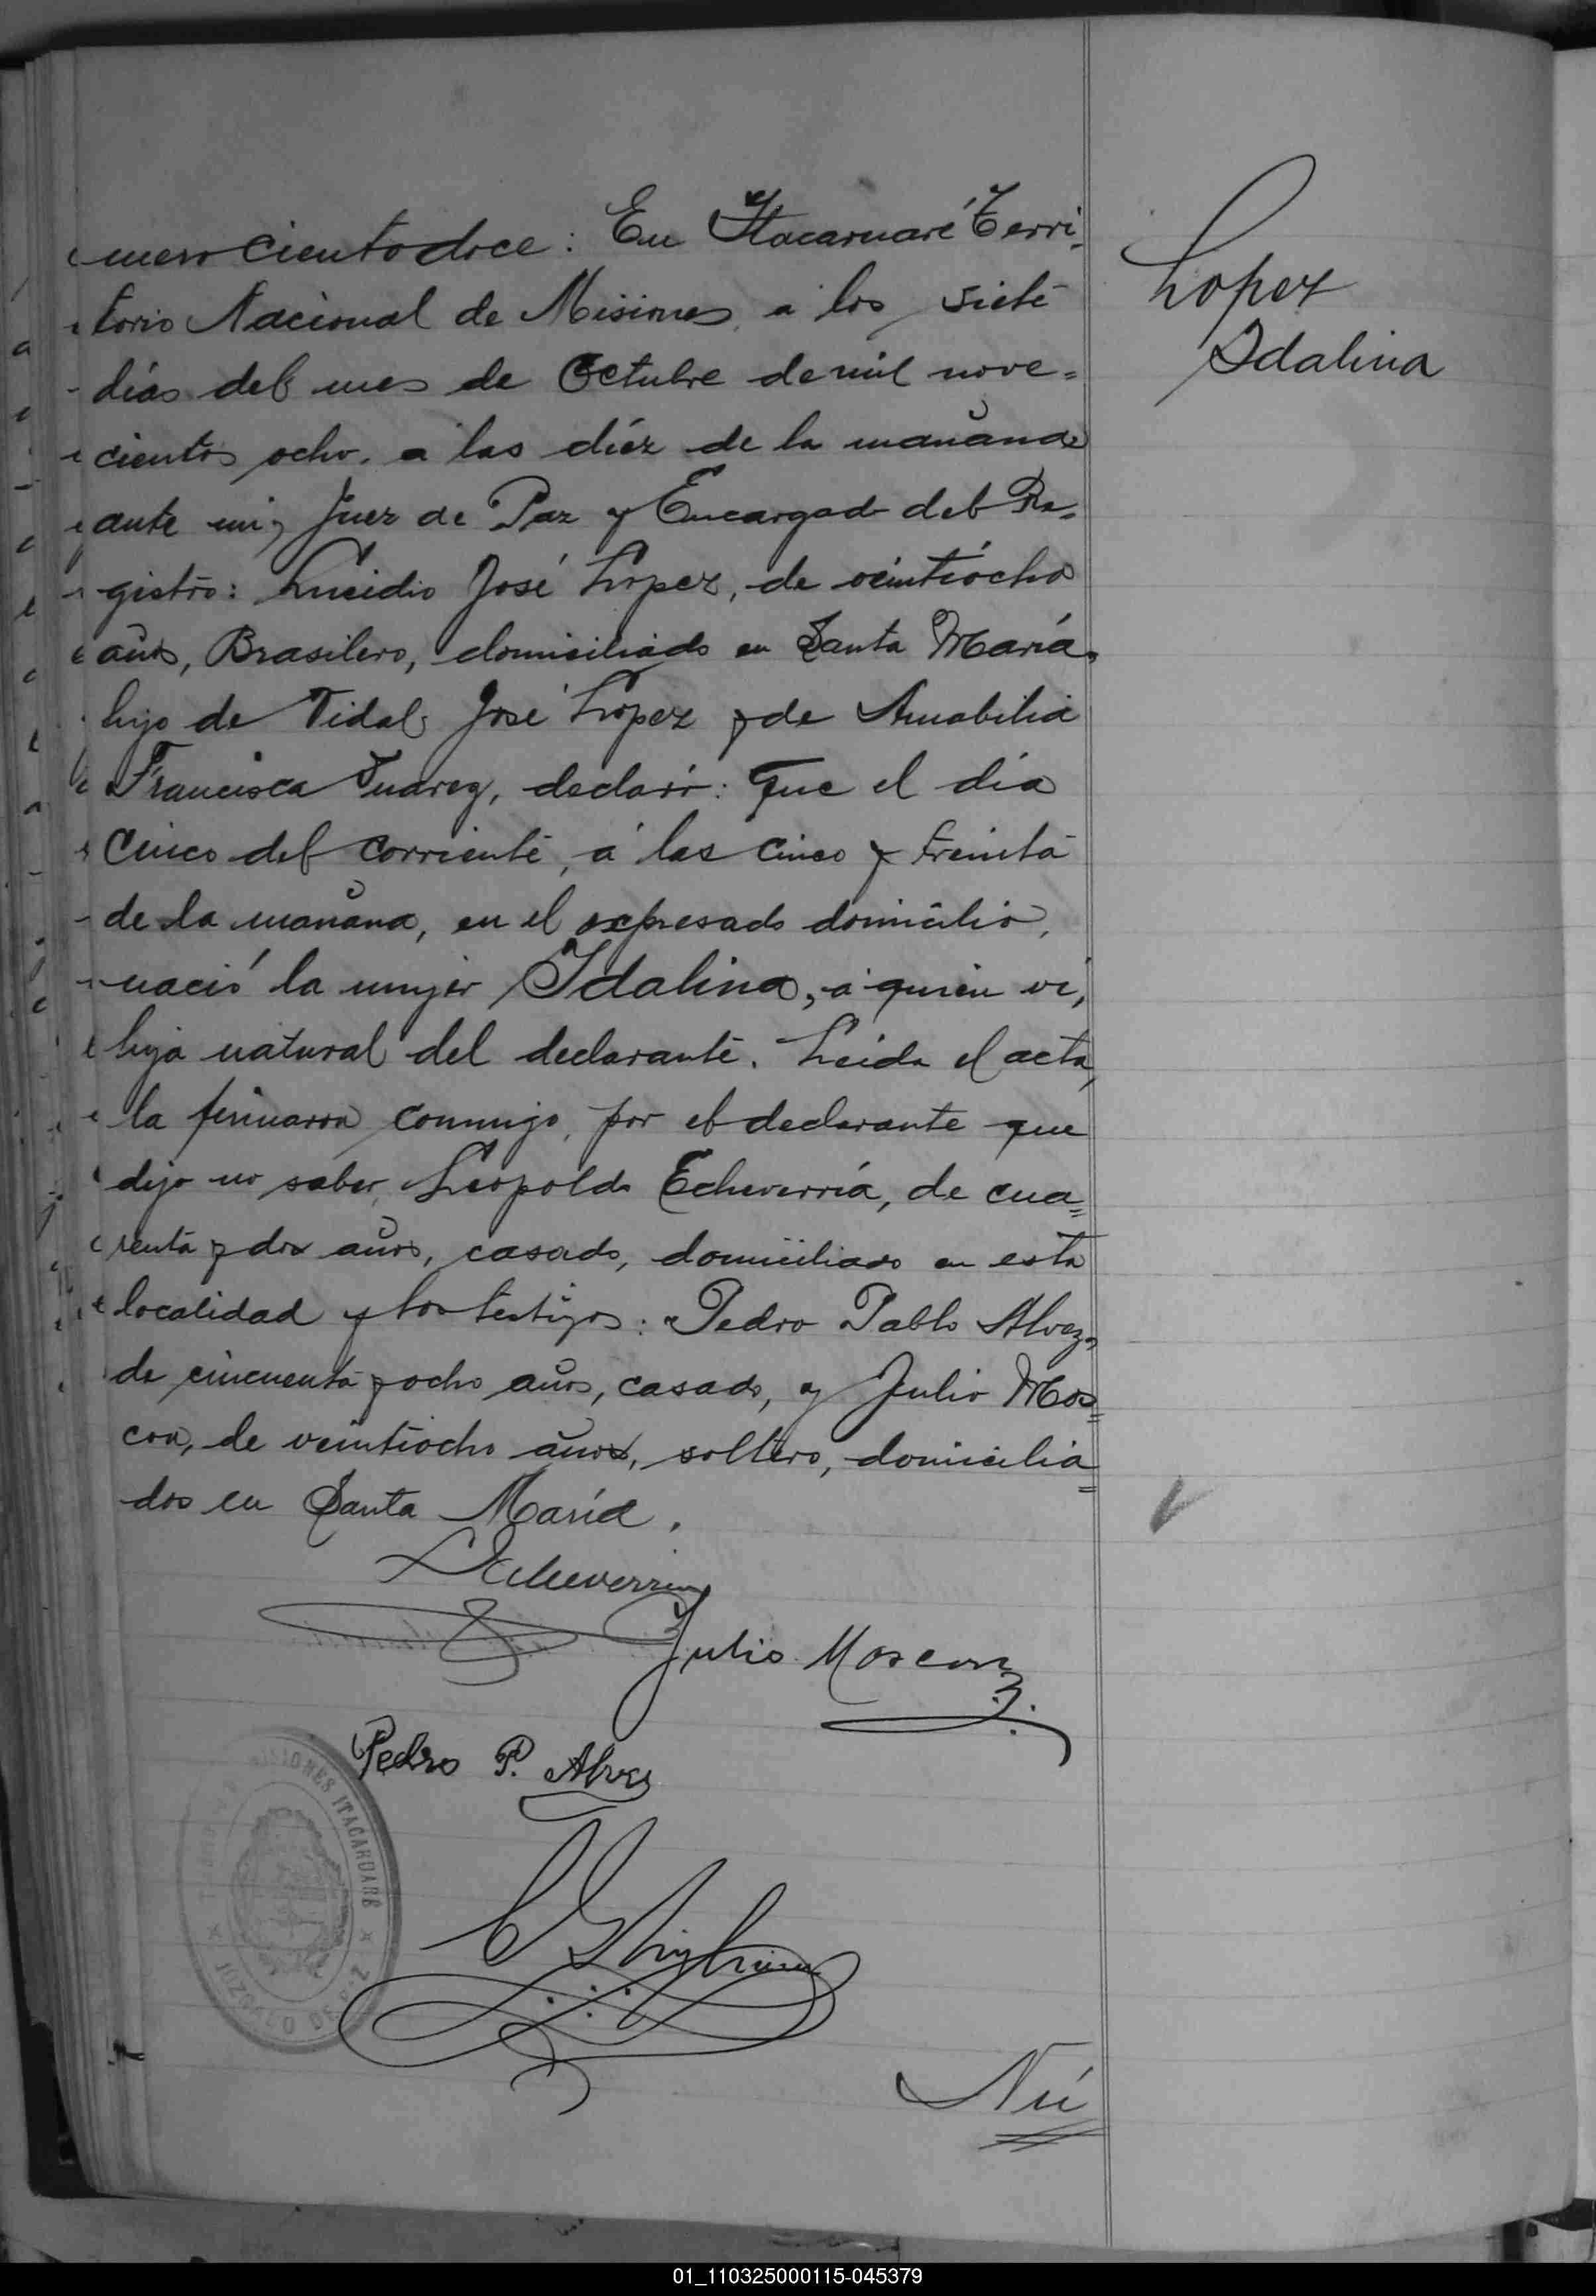 mero ciento doce: En Itacaruaré Terri-
torio Nacional de Misiones, a los siete
días del mes de Octubre de mil nove=
cientos ocho, a las diéz de la mañana
ante mi, Juez de Paz y Encargado del Re=
gistro: Lucidio José Lopez, de veintiocho
años, Brasilero, domiciliado en Santa María,
hijo de Vidal José Lopez y de Amabilia
Francisca Juarez, declaró: Que el día
cinco del corriente, á las cinco y treinta
de la mañana, en el expresado domicilio,
nació la mujer Idalina, a quien vi,
hija natural del declarante. Leida el acta,
la firmaron conmigo, por el declarante que
dijo no saber, Leopoldo Echeverría, de cua=
renta y dos años, casado, domiciliado en esta
localidad y los testigos: Pedro Pablo Alvez,
de cincuenta y ocho años, casado, y Julio Mos=
con, de veintiocho años, soltero, domicilia=
dos en Santa María.
Lopez
Idalina
LEcheverria
Julio Moscon
Pedro P. Alves
MISIONES ITACARUARÉ
JUZGADO DE PAZ
Nú
01_110325000115-045379